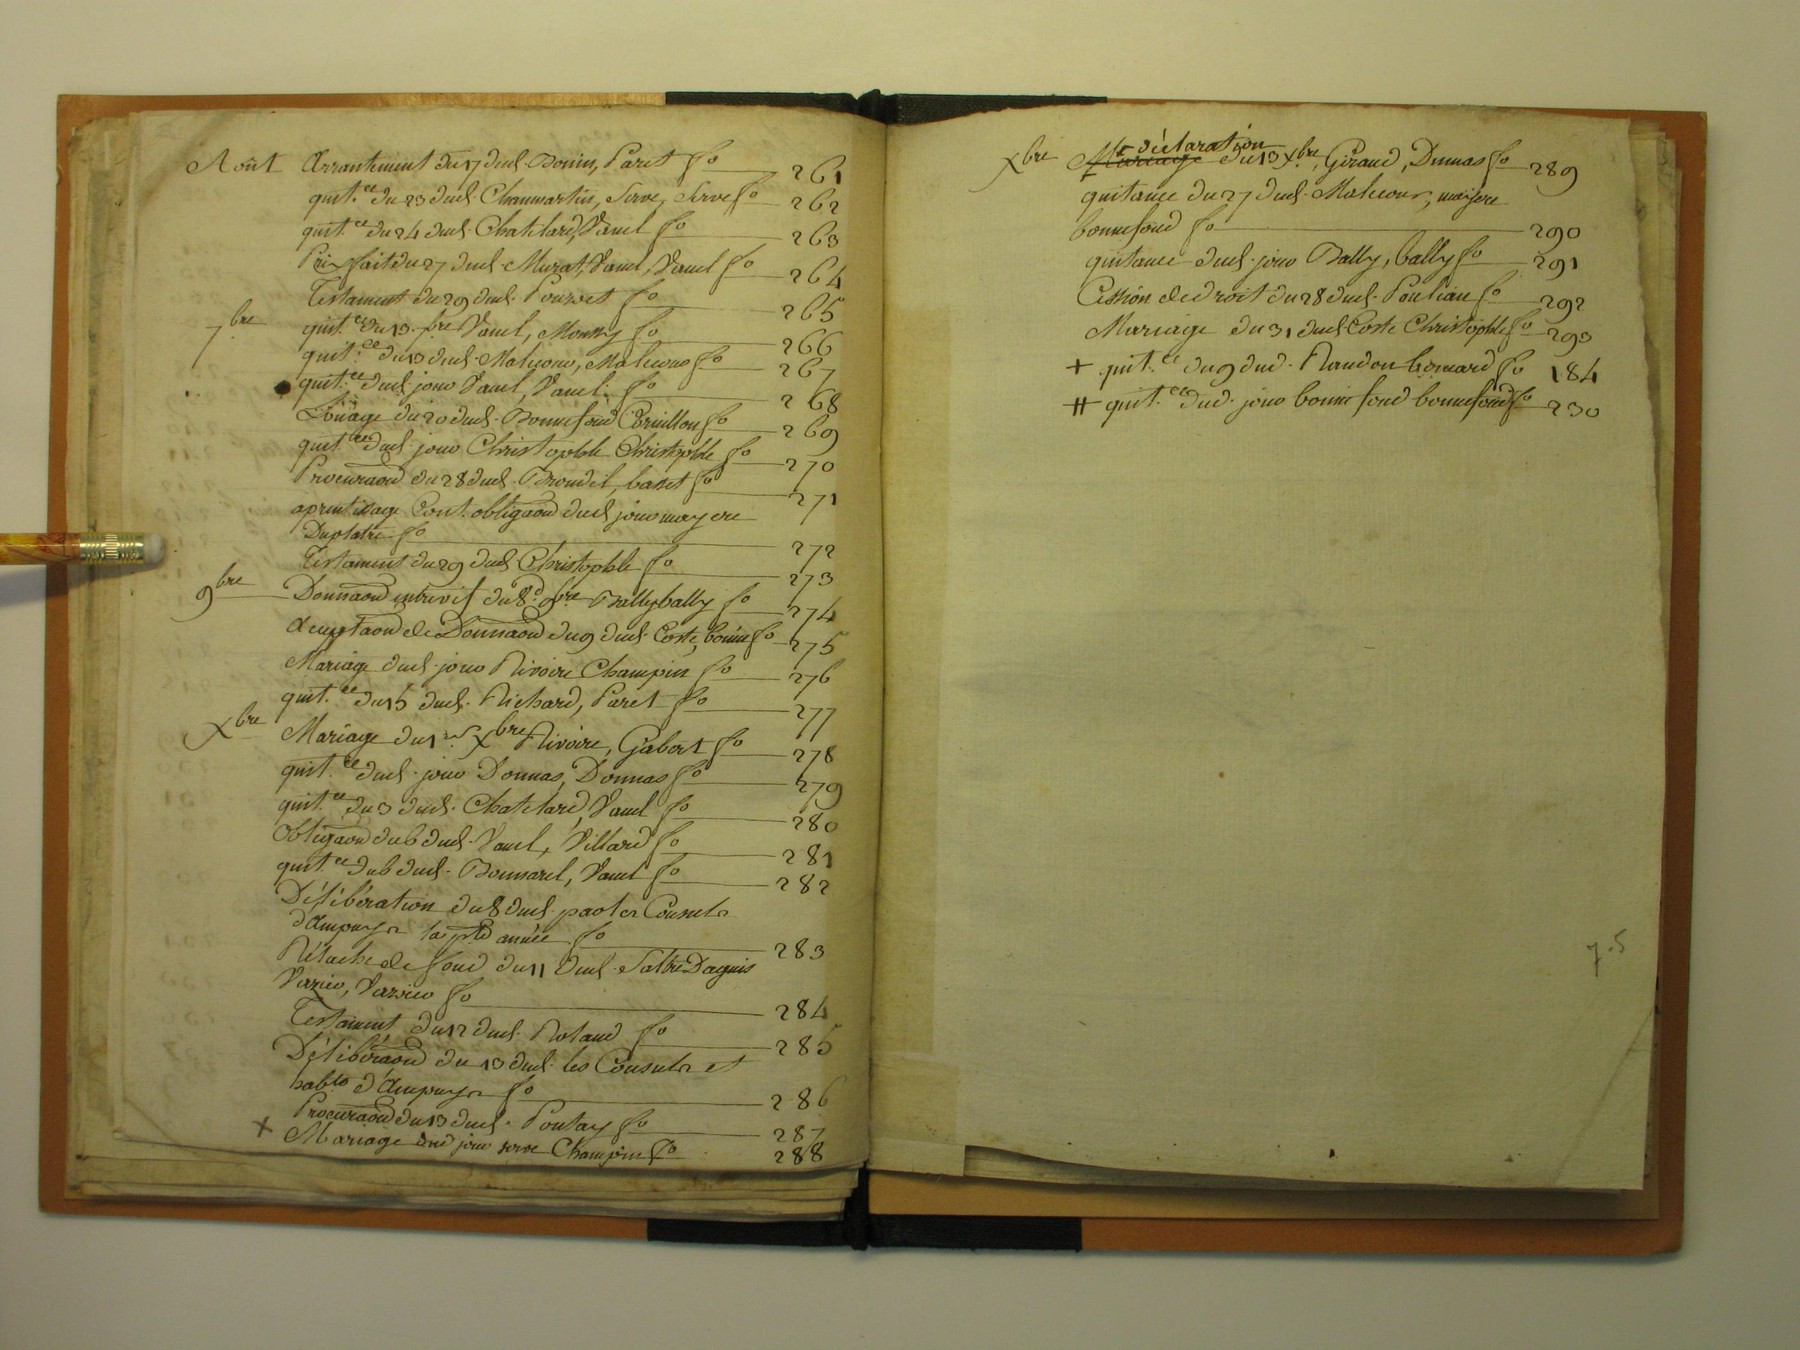 Août Arrantement du 17 dud. Bonin, Paret fo 261
quit.ce du 23 dud. Chanmartin, Serve, Serve fo 262
quit.ce du 24 dud. Chatelard, Vanel fo 263
Prix fait du 27 dud. Murat, Vanel, Vanel fo 264
Testament du 29 dud. Pourret fo 265
7bre quit.ce du 13 7bre Vanel, Montey fo 266
quit.ce du 13 dud. Malicour, Malicour fo 267
quit.ce dud. jour Vanel, Vanel fo 268
Loüage du 20 dud. Bonnefond Cornillon fo 269
quit.ce dud. jour Christophle Christophle fo 270
Procuraõn du 28 dud. Brondel, basset fo 271
aprentissage Cont. obligaõn dud. jour mayere
Duplatre fo 272
Testament du 29 dud. Christophle fo 273
9bre Donnaõn entrevif du 8 d. 9bre Bally bally fo 274
acceptaõn de Donnaõn du 9 dud. Coste, bonin fo 275
Mariage dud. jour Rivoire Champin fo 276
quit.ce du 15 dud. Richard, Paret fo 277
Xbre Mariage du 1er Xbre Rivoire, Gabert fo 278
quit.ce dud. jour Donnas, Donnas fo 279
quit.ce du 3 dud. Chatelard, Vanel fo 280
Obligaõn du 6 dud. Vanel, Villard fo 281
quit.ce du 6 dud. Bonnarel, Vanel fo 282
Délibération du 8 dud. par les Consuls
d'Ampuys la pte année fo 283
Rélache de fond du 11 dud. Daguis
Verzieu, Verzieu fo 284
Testament du 12 dud. Roland fo 285
Délibéraõn du 13 dud. les Consuls et
habts d'Ampuys fo 286
Procuraõn du 13 dud. Poutay fo 287
+ Mariage dud jour serve Champin fo 288
déclaration
Xbre Mariage du 13 Xbre, Giraud, Dumas fo 289
quitance du 27 dud. Malicour, mayere
bonnefond fo 290
quitance dud. jour Bally, bally fo 291
Cession de droit du 28 dud. Poulian fo 292
Mariage du 31 dud. Coste Christophle fo 293
+ quit.ce du 9 dud. Randon bonnard fo 184
# quit.ce dud. jour bonne fond bonnefond fo 230
7.5